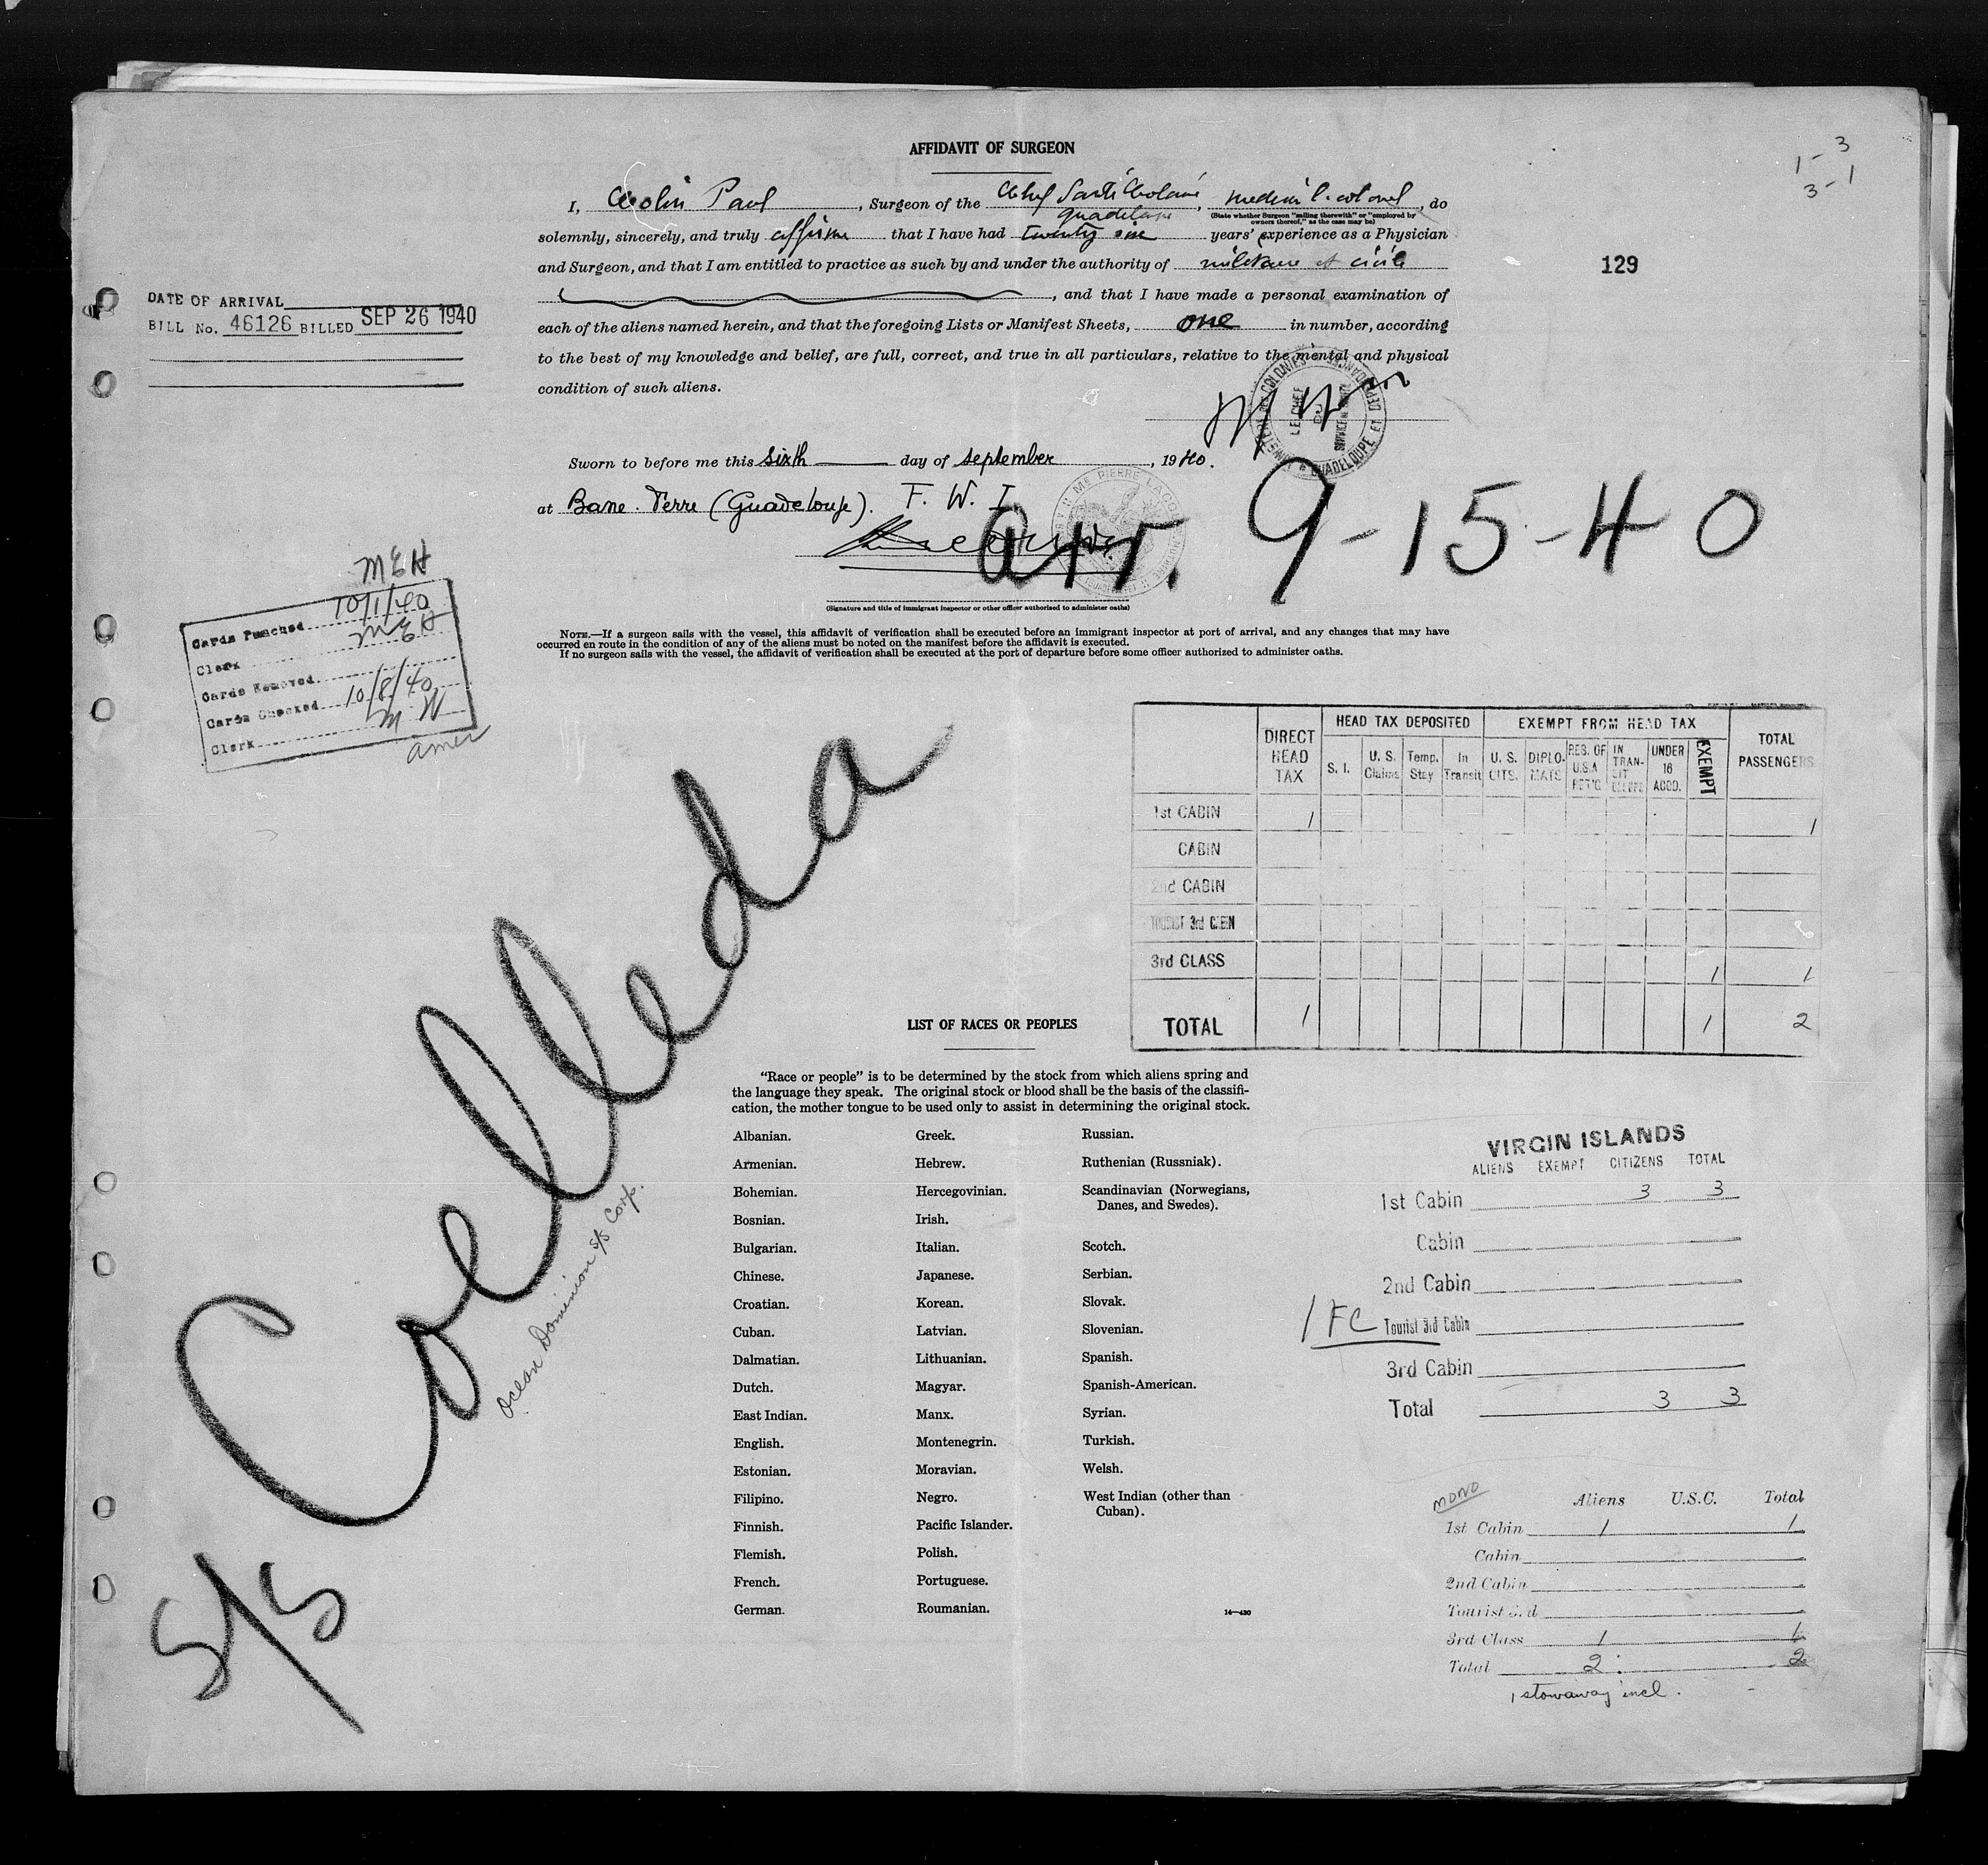 AFFIDAVIT OF SURGEON
1 - 3
3 - 1
I, Paul, Surgeon of the Chef Santé, do
Guadeloupe
(State whether Surgeon "sailing therewith" or "employed by owners thereof," as the case may be)
solemnly, sincerely, and truly affirm that I have had twenty six years' experience as a Physician
and Surgeon, and that I am entitled to practice as such by and under the authority of militaire et civile
129
, and that I have made a personal examination of
each of the aliens named herein, and that the foregoing Lists or Manifest Sheets, one in number, according
to the best of my knowledge and belief, are full, correct, and true in all particulars, relative to the mental and physical
condition of such aliens.
DATE OF ARRIVAL
BILL No. 46126 BILLED SEP 26 1940
MINISTERE DES COLONIES
GUADELOUPE ET DEPENDANCES
LE CHEF
DU
Sworn to before me this sixth day of september, 1940.
at Basse-Terre (Guadeloupe). F. W. I.
Me PIERRE
arr. 9-15-40
(Signature and title of immigrant inspector or other officer authorized to administer oaths)
NOTE.—If a surgeon sails with the vessel, this affidavit of verification shall be executed before an immigrant inspector at port of arrival, and any changes that may have
occurred en route in the condition of any of the aliens must be noted on the manifest before the affidavit is executed.
If no surgeon sails with the vessel, the affidavit of verification shall be executed at the port of departure before some officer authorized to administer oaths.
MEH
Cards Punched 10/1/40
Clerk MEH
Cards Removed
Cards Checked 10/8/40
Clerk MW
amer
DIRECT HEAD TAX
HEAD TAX DEPOSITED
EXEMPT FROM HEAD TAX
TOTAL PASSENGERS
S. I. U. S. Claims Temp. Stay In Transit U. S. CITS. DIPLO- MATS RES. OF U.S.A RET'G IN TRAN- SIT UNDER 16 ACCD. EXEMPT
1st CABIN 1 1
CABIN
2nd CABIN
TOURIST 3rd CABIN
3rd CLASS 1 1
TOTAL 1 1 2
S/S Colleda
Ocean Dominion S/S Corp.
LIST OF RACES OR PEOPLES
"Race or people" is to be determined by the stock from which aliens spring and
the language they speak. The original stock or blood shall be the basis of the classifi-
cation, the mother tongue to be used only to assist in determining the original stock.
Albanian.
Armenian.
Bohemian.
Bosnian.
Bulgarian.
Chinese.
Croatian.
Cuban.
Dalmatian.
Dutch.
East Indian.
English.
Estonian.
Filipino.
Finnish.
Flemish.
French.
German.
Greek.
Hebrew.
Hercegovinian.
Irish.
Italian.
Japanese.
Korean.
Latvian.
Lithuanian.
Magyar.
Manx.
Montenegrin.
Moravian.
Negro.
Pacific Islander.
Polish.
Portuguese.
Roumanian.
Russian.
Ruthenian (Russniak).
Scandinavian (Norwegians,
Danes, and Swedes).
Scotch.
Serbian.
Slovak.
Slovenian.
Spanish.
Spanish-American.
Syrian.
Turkish.
Welsh.
West Indian (other than
Cuban).
14—430
VIRGIN ISLANDS
ALIENS EXEMPT CITIZENS TOTAL
1st Cabin 3 3
Cabin
2nd Cabin
1 FC Tourist 3rd Cabin
3rd Cabin
Total 3 3
MONO
Aliens U.S.C. Total
1st Cabin 1 1
Cabin
2nd Cabin
Tourist 3rd
3rd Class 1 1
Total 2 2
1 stowaway incl.